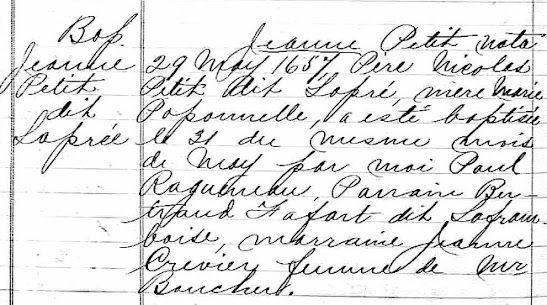 Bap.
Jeanne
Petit
dit
Laprée
Jeanne Petit nata
29 May 1657, Père Nicolas
Petit dit Lapré, mère Marie
Poponnelle, a esté baptisée
le 31 du mesme mois
de May par moi Paul
Ragueneau, Parrain Ber-
trand Fafart dit Lafram-
boise, marraine Jeanne
Crevier femme de Mr
Boucher.